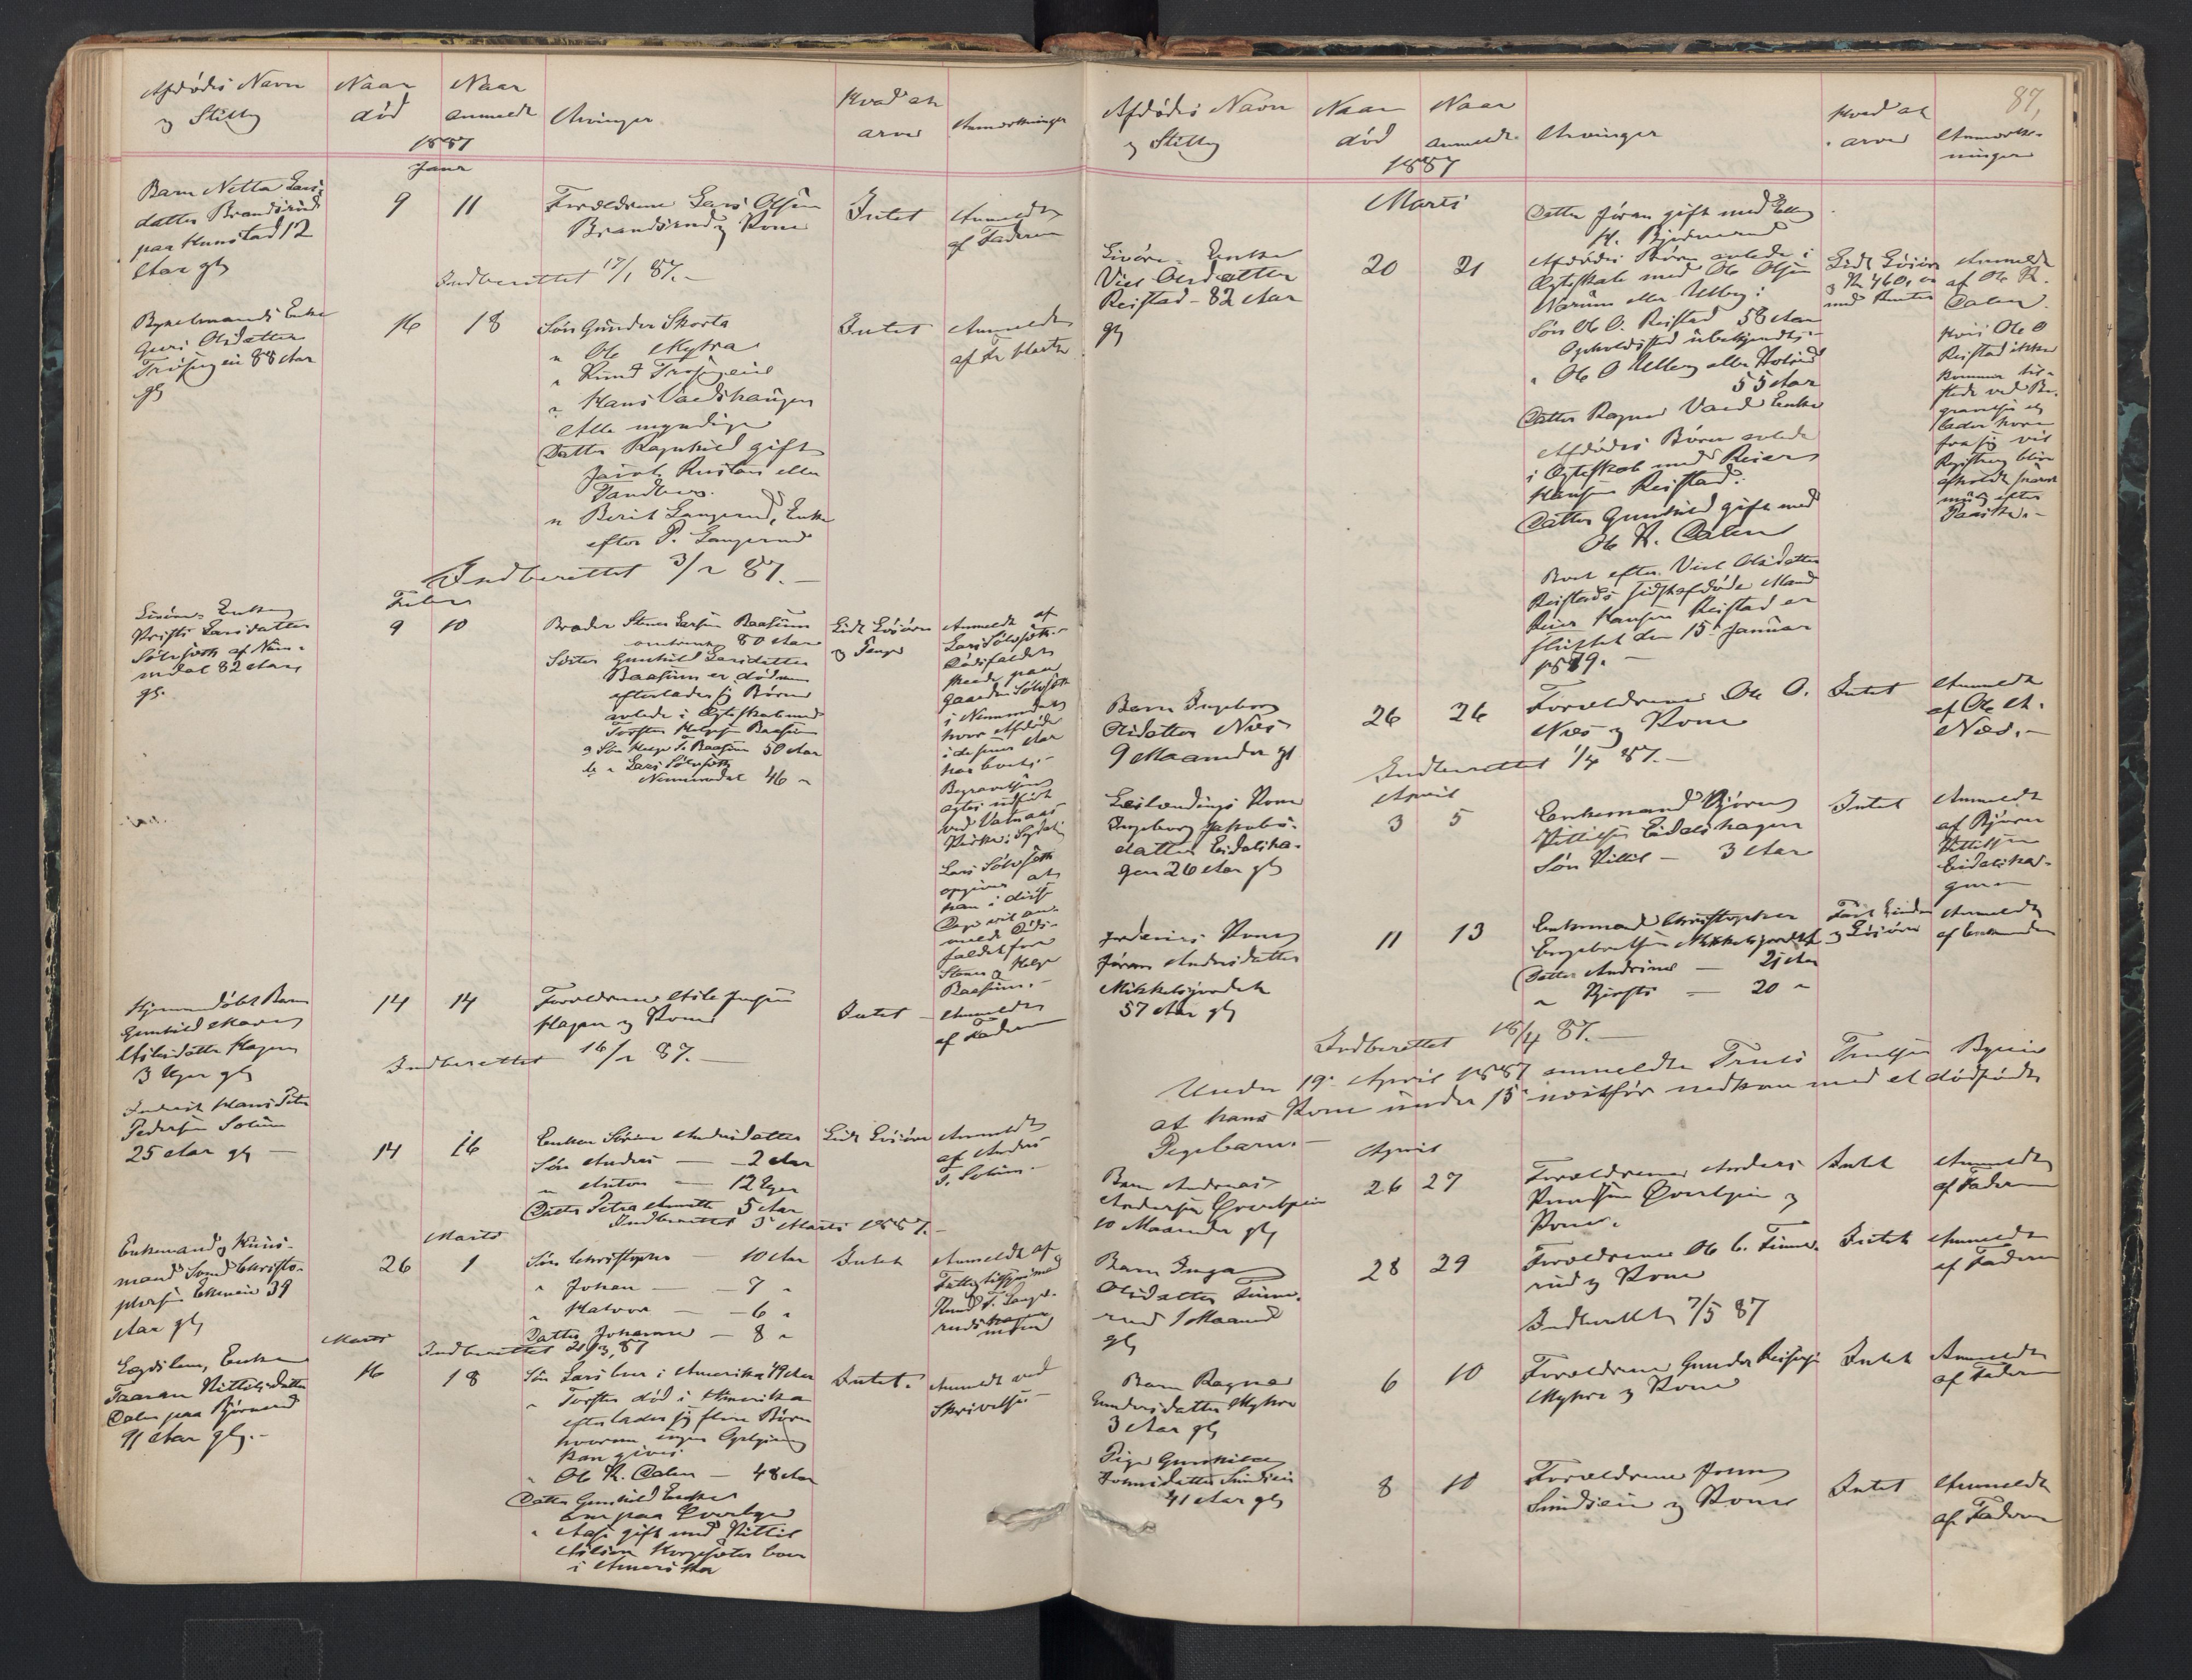 Afdødes Navn
og Stilling
Naar
død
Naar
anmeldt
Arvinger
Hvad at
arve
Anmærkninger
1887
Janr
Barn Netta Lars-
datter Brandsrud
paa Kunstad 12
Aar gl
9
11
Forældrene Lars Olsen
Brandsrud og Kone
Intet
Anmeldt
af Faderen
Indberettet 17/1 87.-
Guri Olsdatter
88 Aar
gl
16
18
Søn Gunder Skorta
" Ole Myhra
" Knud
" Hans
Alle myndige
Datter Ragnhild gift
Jacob
Sandbers.
" Berit Langerud, Enke
efter P. Langerud
Intet
Anmeldt
af
Indberettet 3/2 87.-
Febr
Livøre Enke
Kristi Larsdatter
82 Aar
gl.
9
10
Broder Stener Larsen Baasum
omtrent 80 Aar
Søster Gunhild Larsdatter
Baasum er død men
efterlader sig Børn
avlede i Ægteskab med
Torsten Helgesen Baasum
a Søn Helge T. Baasum 50 Aar
Nummedal 46 "
Lidt Løsøre
og Penge
Anmeldt af
Lars
Dødsfaldet
skeede paa
gaarden
i Nummedal
hvor Afdøde
i de senere Aar
har boet.-
Begravelsen
agtes udført
ved
Kirke i Sigdal
Lars
opgiver at
han i disse
Dage vil an-
melde Døds-
faldet for
Stener og Helge
Baasum.-
Hjemmedøbt Barn
Gunhild Maren
datter Hagen
3 Uger gl
14
14
Forældrene Jensen
Hagen og Kone
Intet
Anmeldt
af Faderen
Indberettet 16/2 87.-
Inderst Hans Peter
Pedersen Solum
25 Aar gl -
14
16
Enken Sørine Andersdatter
Søn Anders - 2 Aar
" Anton - 12 Uger
Datter Petra Annette 5 Aar
Lidt Løsøre
Anmeldt
af Anders
P. Solum -
Indberettet 5 Marts 1887.-
Marts
Enkemand og Huus-
mand Christo-
phersen 39
Aar gl
26
1
Søn Christopher - 10 Aar
" Johan - 7 "
" Halvor - 6 "
Datter Johanne - 8 "
Intet
Anmeldt af
Knud T. Lange-
Marts
Indberettet 21/3 87
Lægdslem, Enke
Kittilsdatter
Dalen paa Bjørnerud
91 Aar gl.-
16
18
Søn Lars bor i Amerika 49 Aar
" Torsten død i Amerika
efterlader sig flere Børn
hvorom ingen Oplysning
kan gives.
" Ole K. Dalen - 48 Aar
Datter Gunhild Enke
bor paa
" Aase gift med Kittil
bor
i Amerika
Intet.
Anmeldt ved
Skrivelse
87,
Afdødes Navn
og Stilling
Naar
død
Naar
anmeldt
Arvinger
Hvad at
arve
Anmærk-
ninger
1887
Marts
Datter Jøran gift med
H. Bjørnerud
Livøre Enke
Viel Olsdatter
Reistad - 82 Aar
gl
20
21
Afdødes Børn avlede i
Ægteskab med Ole Olsen
Søn Ole O. Reistad 58 Aar
Opholdssted ubekjendt;
" Ole O. Ulberg eller
55 Aar
Datter Ragne Enke
Afdødes Børn avlede
i Ægteskab med Reier
Hansen Reistad:
Datter Gunhild gift med
Ole K. Dalen
Boet efter Viel Olsdatter
Reistads sidstafdøde Mand
Reier Hansen Reistad er
sluttet den 15 Januar
1879.-
Lidt Løsøre
og Kr 460,
med Renter
Anmeldt
af Ole K.
Dalen.
Hvis Ole O
Reistad ikke
kommer til-
stede ved Be-
gravelsen el
lader høre
fra sig vil
Registrering blive
afholdt snarest
mulig efter
Paaske.-
Barn Ingeborg
Olsdatter Næs
9 Maaneder gl
26
26
Forældrene Ole O.
Næs og Kone
Intet
Anmeldt
af Ole A.
Næs.-
Indberettet 1/4 87.-
April
Leilændings Kone
Ingeborg Jakobs-
datter Eidalsha-
gen 26 Aar gl
3
5
Enkemand Bjørn
Kittilsen Eidalshagen
Søn Kittil - 3 Aar
Intet
Anmeldt
af Bjørn
Kittilsen
Eidalsha-
gen
Kone
Jøran Andersdatter
57 Aar gl
11
13
Enkemand Christopher
Engebretsen
Datter Andrine - 21 Aar
" Kjersti - 20 "
og Løsøre
Anmeldt
af Enkemanden
Indberettet 18/4 87.-
Under 19 April 1887 anmeldte Truls Trulsen
at hans Kone under 15 nedkom med et dødfødt
Pigebarn.-
April
Barn Andreas
Andersen
10 Maaneder gl
26
27
Forældrene Anders
Knudsen og
Kone.
Intet
Anmeldt
af Faderen
Barn Inga
Olsdatter
rud 1 Maaned
gl
28
29
Forældrene Ole C.
rud og Kone
Intet
Anmeldt
af Faderen
Indberettet 7/5 87
Barn Ragne
Gundersdatter Myhre
3 Aar gl
6
10
Forældrene Gunder
Myhre og Kone
Intet
Anmeldt
af Faderen
Pige Gunhild
41 Aar gl
8
10
Forældrene
og Kone
Intet
Anmeldt
af Faderen